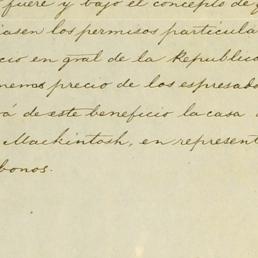 fuere y bajo el concepto de
iasen los permisos particula
cio en gral de la Republica
nemos precio de los espresado
á de este beneficio la casa
Mackintosh, en represent
bonos.